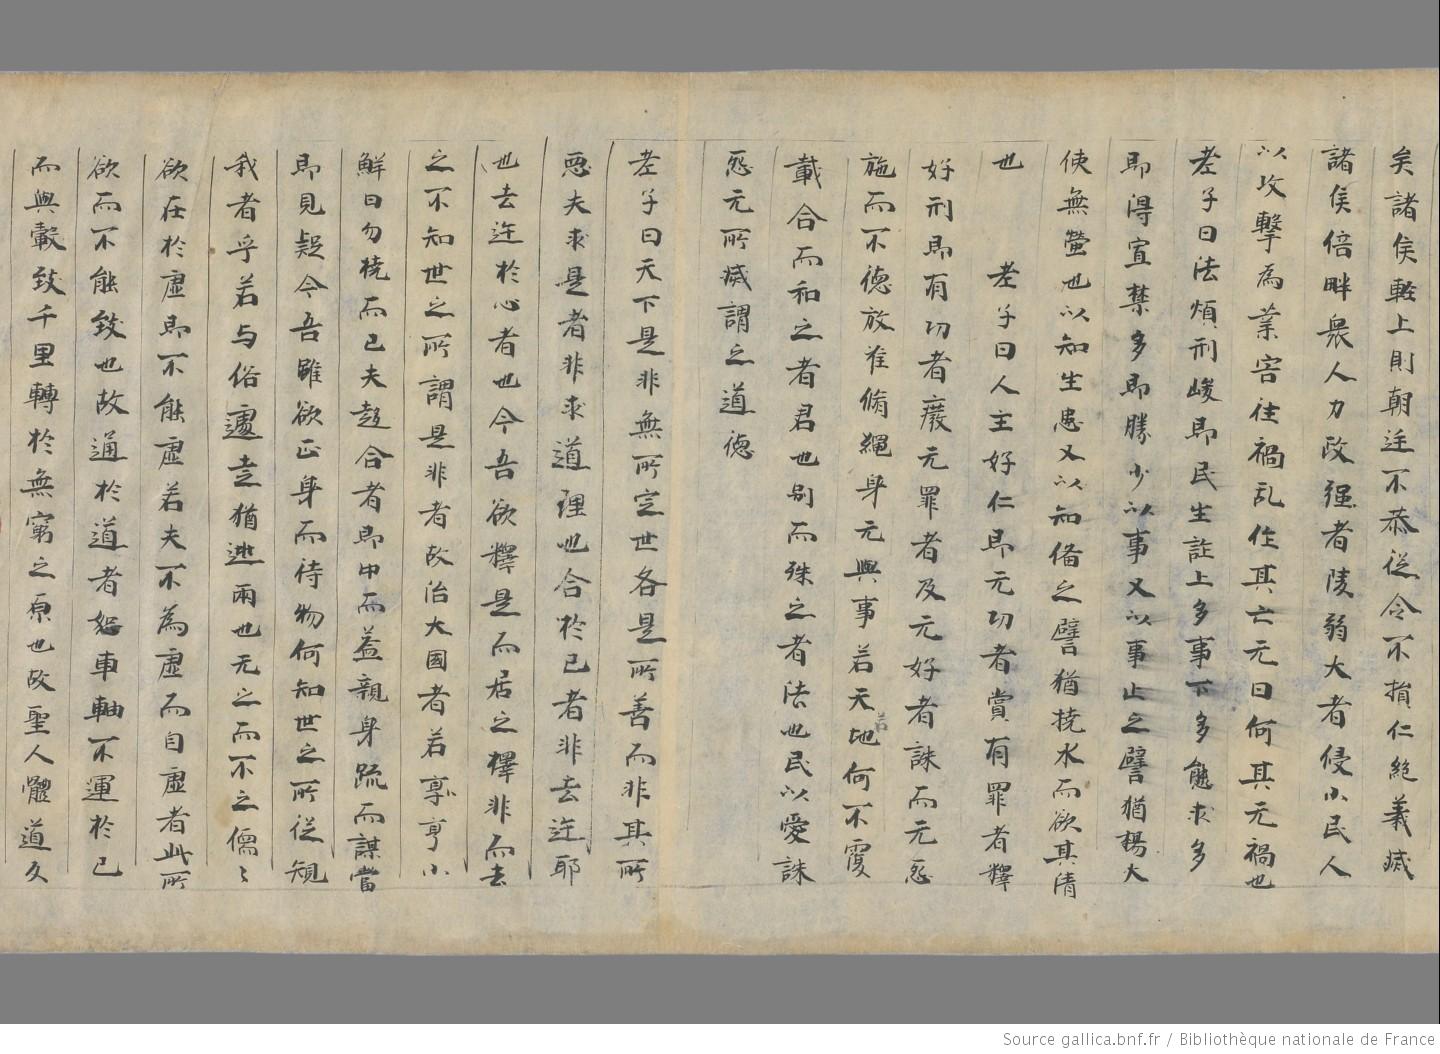 矣諸侯輕上則朝廷不恭従令不損仁絶義滅
諸侯倍畔衆人力政强者陵弱大者侵小民人
以攻擊為業害往禍乱任其亡无日何其无禍也
老子曰法煩刑峻即民生詐上多事下多態求多
即淂宣禁多即勝少以事又以事止之譬猶楊大
使無螢也以知生患又以知俻之譬猶撓水而欲其清
也　　老子曰人主好仁即元功者賞有罪者釋
好刑即有功者癈元罪者及元好者誅而元惡
施而不德放准脩繩身元與事若天若地何不覆
載合而和之者君也别而殊之者法也民以愛誅
惡元所滅謂之道德
老子曰天下是非無所定世各是所善而非其所
惡夫求是者非求道理也合於己者非去迕耶
也去迕於心者也今吾欲釋是而居之釋非而去
之不知世之所謂是非者故治大國者若享亨小
鮮曰勿撓而已夫趍合者即中而益親身踈而謀當
即見疑今吾雖欲正身而待物何知世之所従䂓
我者乎若与俗遽走猶逃雨也无之而不之儒〻
欲在於虛即不能虛若夫不為虛而自虛者此所
欲而不能致也故通於道者如車軸不運於己
而與轂致千里轉於無窮之原也故聖人體道久
Source gallica.bnf.fr / Bibliothèque nationale de France